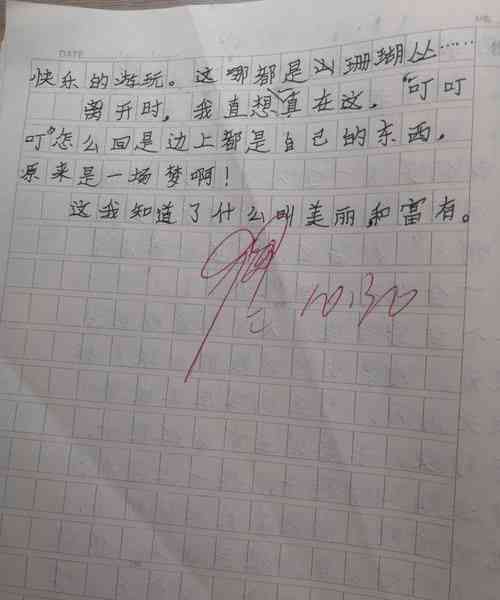 DATE
快乐的游玩。这哪都是山珊瑚丛……
离开时，我直想真在这，“叮叮
叮”怎么回是边上都是自己的东西，
原来是一场梦啊！
这我知道了什么叫美丽和富有。
10.30